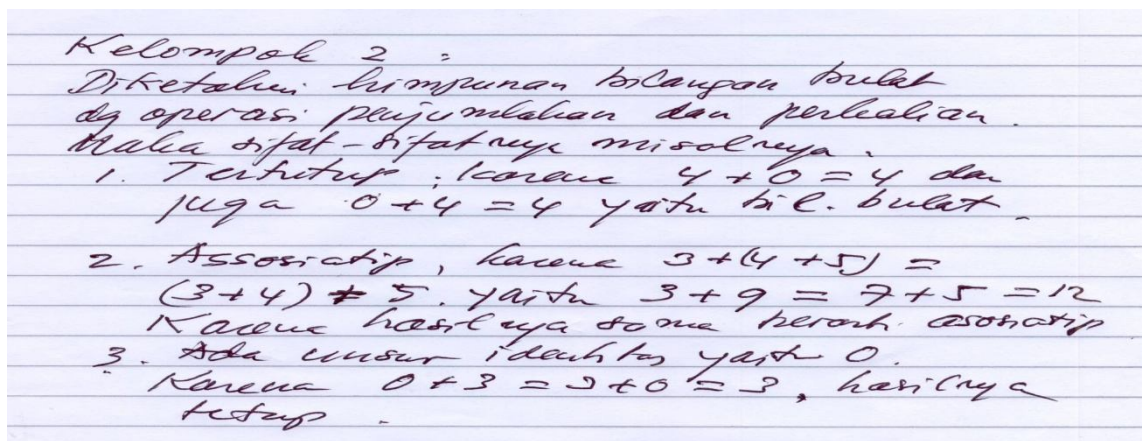 Kelompok 2 :
Diketahui himpunan bilangan bulat
dg operasi penjumlahan dan perkalian.
Maka sifat-sifatnya misalnya.
1. Tertutup, karena 4 + 0 = 4 dan
juga 0 + 4 = 4 yaitu bil. bulat.
2. Assosiatip, karena 3 + (4 + 5) =
(3 + 4) + 5. yaitu 3 + 9 = 7 + 5 = 12
Karena hasilnya sama berarti asosiatip
3. Ada unsur identitas yaitu 0.
Karena 0 + 3 = 3 + 0 = 3, hasilnya
tetap.